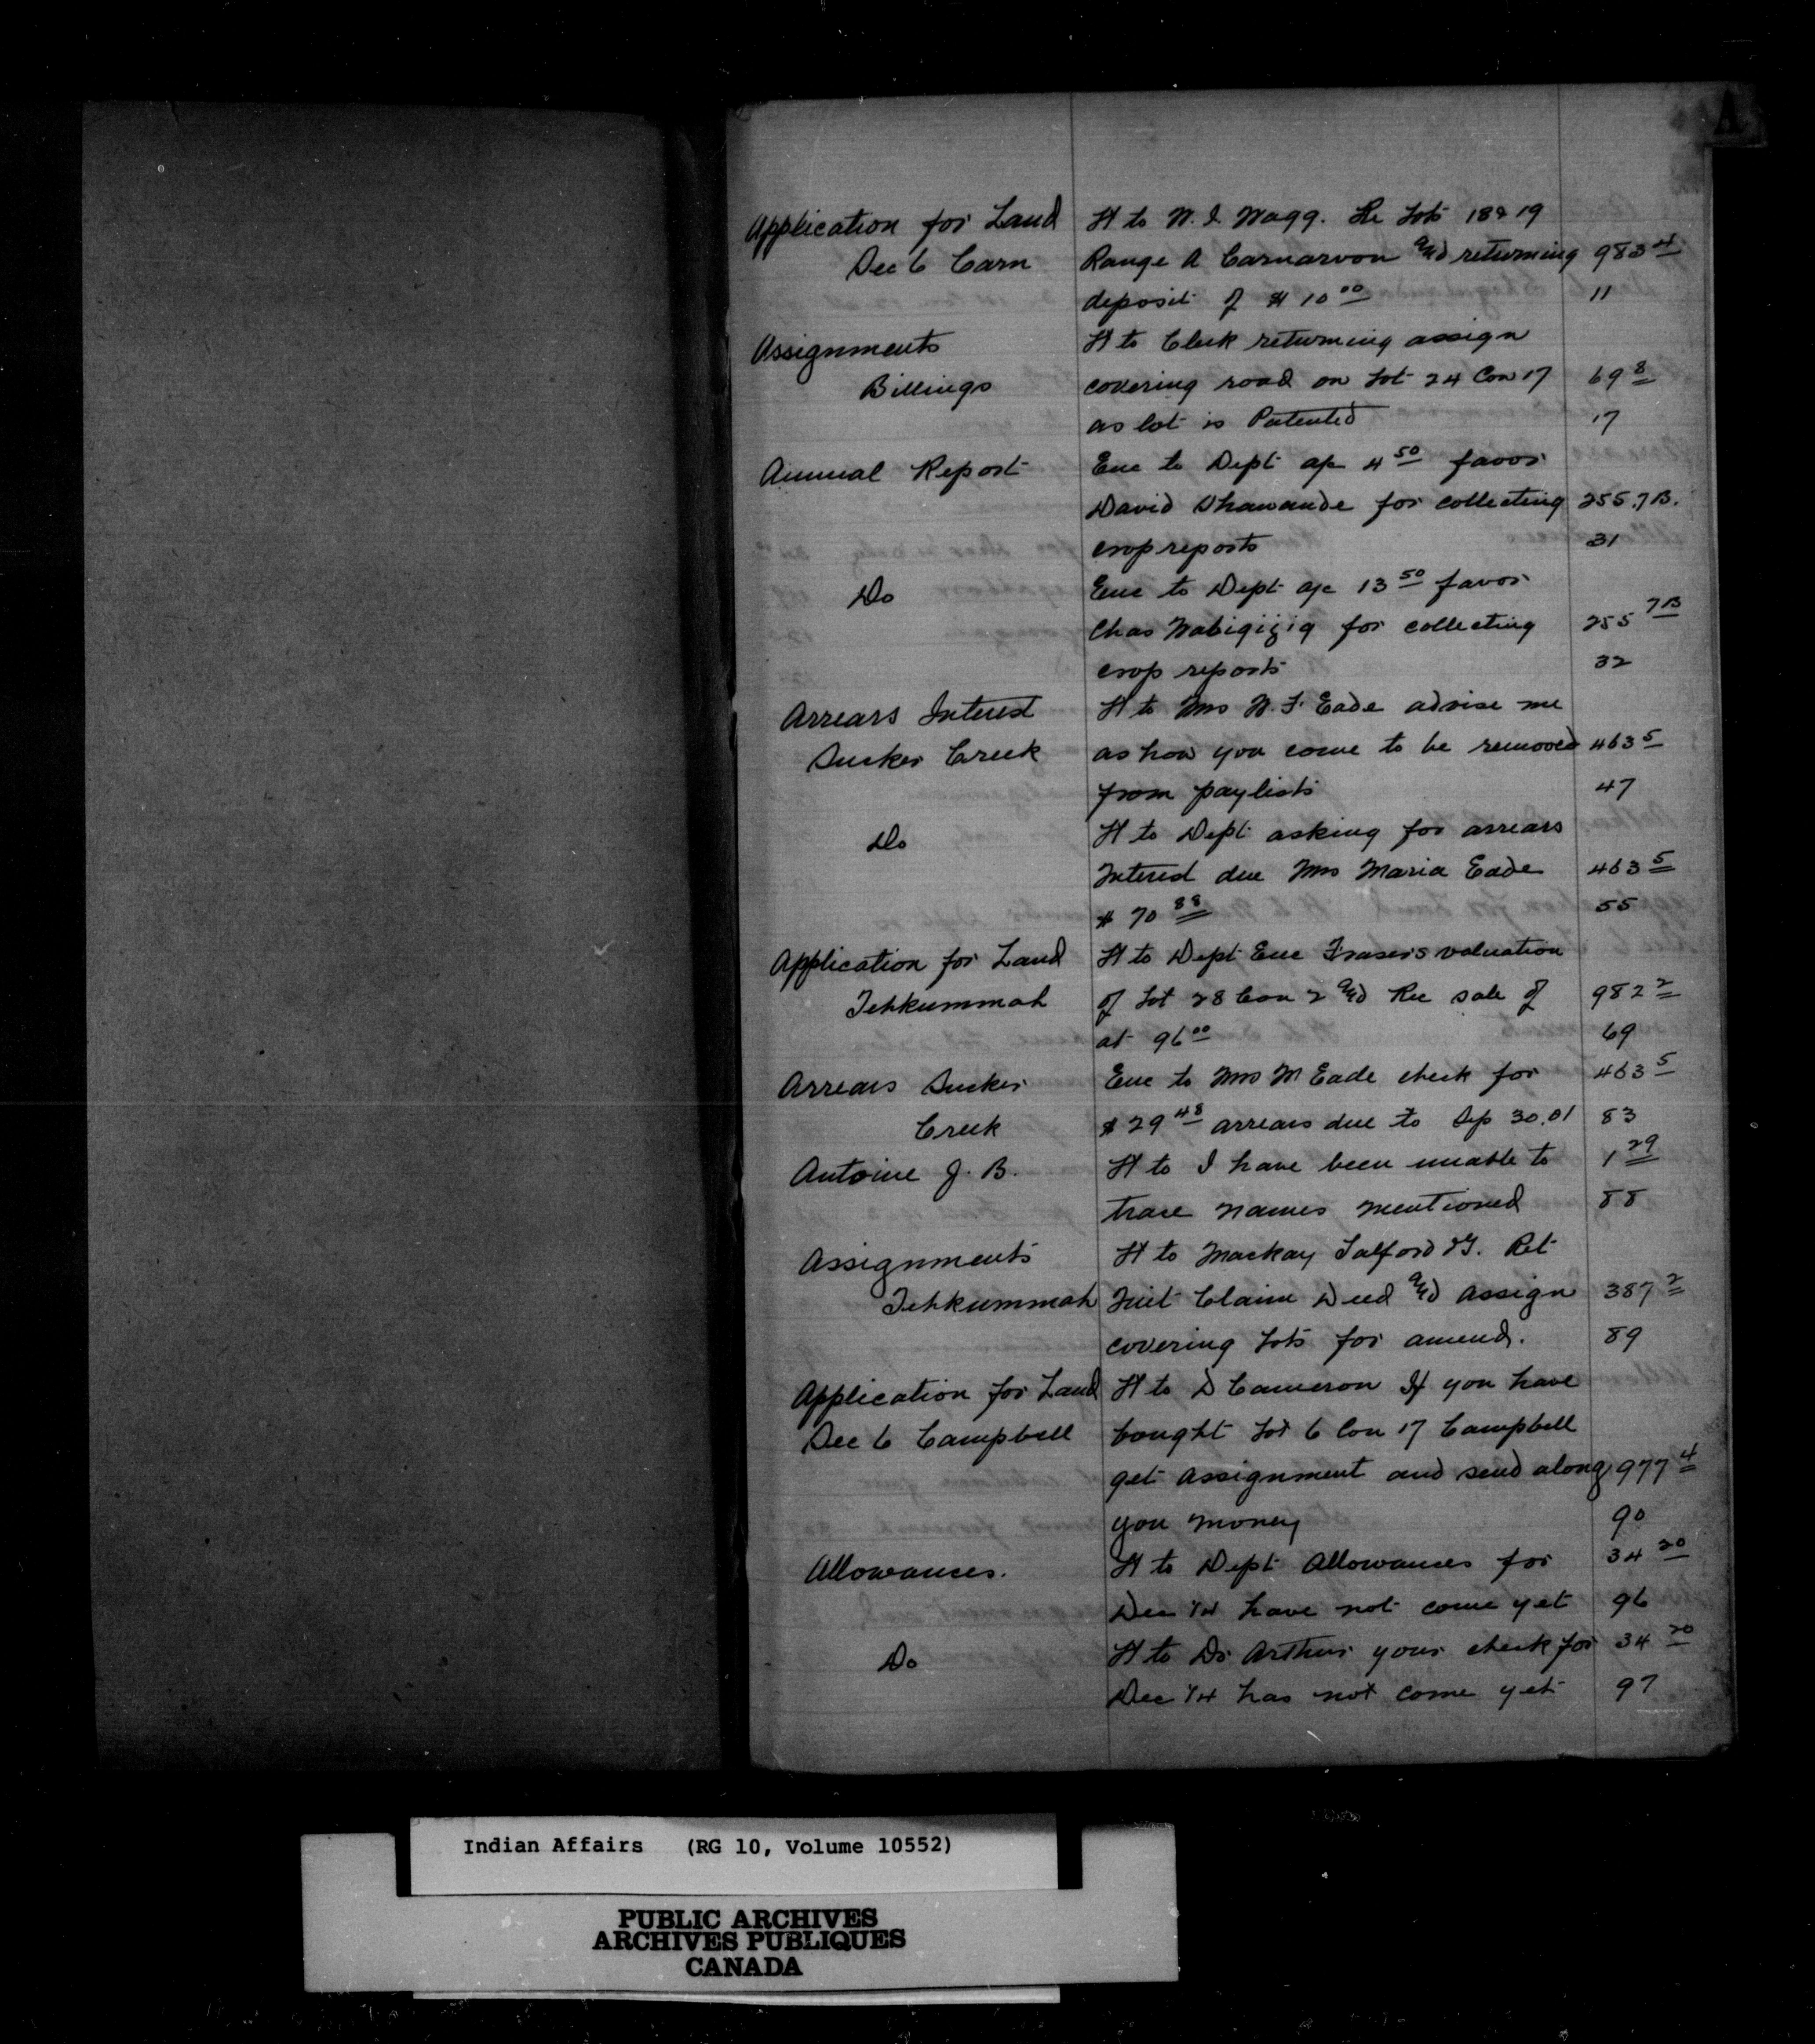 A
Application for Land H to W. I. Wagg. Re Lots 18 & 19
Dec 6 Carn Range A Carnarvon and returning 983 4
deposit of $ 10 00 11
Assignments H to Clerk returning assign
Billings covering road on Lot 24 Con 17 69 8
as lot is Patented 17
Annual Report Enc to Dept a/c 4 50 favor
David Shawande for collecting 255.7B.
crop reports 31
Do Enc to Dept a/c 13 50 favor
Chas Wabigizig for collecting 255 7B
crop reports 32
Arrears Interest H to Mrs W. F. Eade advise me
Sucker Creek as how you come to be removed 463 5
from paylists 47
Do H to Dept asking for arrears
Interest due Mrs Maria Eade 463 5
$ 70 88 55
Application for Land H to Dept Enc Frasers valuation
Tehkummah of Lot 28 Con 2 and Rec sale of 982 2
at 96 00 69
Arrears Sucker Enc to Mrs M Eade check for 463 5
Creek $ 29 48 arrears due to Sep 30.01 83
Antoine J. B. H to I have been unable to 1 29
trace names mentioned 88
Assignments H to Mackay Talford & G. Ret
Tehkummah Quit Claim Deed and Assign 387 2
covering Lots for amend. 89
Application for Land H to D Cameron If you have
Dec 6 Campbell bought Lot 6 Con 17 Campbell
get assignment and send along 977 4
you money 90
Allowances. H to Dept Allowances for 34 20
Dec 1/4 have not come yet 96
Do H to Dr Arthur your check for 34 20
Dec 1/4 has not come yet 97
Indian Affairs (RG 10, Volume 10552)
PUBLIC ARCHIVES
ARCHIVES PUBLIQUES
CANADA